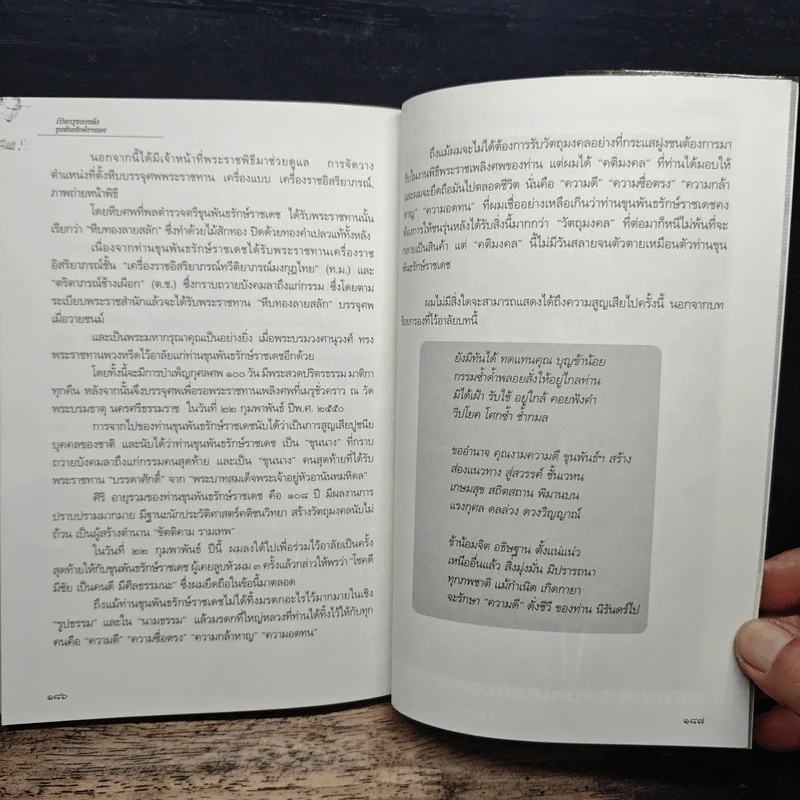 เปิดกรุของขลัง
ขุนพันธรักษ์ราชเดช
นอกจากนี้ได้มีเจ้าหน้าที่พระราชพิธีมาช่วยดูแล การจัดวาง
ตำแหน่งที่ตั้งหีบบรรจุศพพระราชทาน เครื่องแบบ เครื่องราชอิสริยาภรณ์,
ภาพถ่ายหน้าพิธี
โดยหีบศพที่พลตำรวจตรีขุนพันธรักษ์ราชเดช ได้รับพระราชทานนั้น
เรียกว่า "หีบทองลายสลัก" ซึ่งทำด้วยไม้สักทอง ปิดด้วยทองคำเปลวแท้ทั้งหลัง
เนื่องจากท่านขุนพันธรักษ์ราชเดชได้รับพระราชทานเครื่องราช
อิสริยาภรณ์ชั้น "เครื่องราชอิสริยาภรณ์ทวีติยาภรณ์มงกุฎไทย" (ท.ม.) และ
"ตริตาภรณ์ช้างเผือก" (ต.ช.) ซึ่งกราบถวายบังคมลาถึงแก่กรรม ซึ่งโดยตาม
ระเบียบพระราชสำนักแล้วจะได้รับพระราชทาน "หีบทองลายสลัก" บรรจุศพ
เมื่อวายชนม์
และเป็นพระมหากรุณาคุณเป็นอย่างยิ่ง เมื่อพระบรมวงศานุวงศ์ ทรง
พระราชทานพวงหรีดไว้อาลัยแก่ท่านขุนพันธรักษ์ราชเดชอีกด้วย
โดยทั้งนี้จะมีการบำเพ็ญกุศลศพ ๑๐๐ วัน มีพระสวดปริตรธรรม มาติกา
ทุกคืน หลังจากนั้นจึงบรรจุศพเพื่อรอพระราชทานเพลิงที่เมรุชั่วคราว ณ วัด
พระบรมธาตุ นครศรีธรรมราช ในวันที่ ๒๒ กุมภาพันธ์ ปีพ.ศ. ๒๕๕๐
การจากไปของท่านขุนพันธรักษ์ราชเดชนับได้ว่าเป็นการสูญเสียปูชนีย
บุคคลของชาติ และนับได้ว่าท่านขุนพันธรักษ์ราชเดช เป็น "ขุนนาง" ที่กราบ
ถวายบังคมลาถึงแก่กรรมคนสุดท้าย และเป็น "ขุนนาง" คนสุดท้ายที่ได้รับ
พระราชทาน "บรรดาศักดิ์" จาก "พระบาทสมเด็จพระเจ้าอยู่หัวอานันทมหิดล"
สิริ อายุรวมของท่านขุนพันธรักษ์ราชเดช คือ ๑๐๘ ปี มีผลงานการ
ปราบปรามมากมาย มีฐานะนักประวัติศาสตร์คติชนวิทยา สร้างวัตถุมงคลนับไม่
ถ้วน เป็นผู้สร้างตำนาน "ขัตติคาม รามเทพ"
ในวันที่ ๒๒ กุมภาพันธ์ ปีนี้ ผมลงใต้ไปเพื่อร่วมไว้อาลัยเป็นครั้ง
สุดท้ายให้กับขุนพันธรักษ์ราชเดช ผู้เคยลูบหัวผม ๓ ครั้งแล้วกล่าวให้พรว่า "โชคดี
มีชัย เป็นคนดี มีศีลธรรมนะ" ซึ่งผมยึดถือในข้อนี้มาตลอด
ถึงแม้ท่านขุนพันธรักษ์ราชเดชไม่ได้ทิ้งมรดกอะไรไว้มากมายในเชิง
"รูปธรรม" และใน "นามธรรม" แล้วมรดกที่ใหญ่หลวงที่ท่านได้ทิ้งไว้ให้กับทุก
คนคือ "ความดี" "ความซื่อตรง" "ความกล้าหาญ" "ความอดทน"
๑๘๖
ถึงแม้ผมจะไม่ได้ต้องการรับวัตถุมงคลอย่างที่กระแสฝูงชนต้องการมา
รับในงานพิธีพระราชเพลิงศพของท่าน แต่ผมได้ "คติมงคล" ที่ท่านได้มอบให้
และผมจะยึดถือมันไปตลอดชีวิต นั่นคือ "ความดี" "ความซื่อตรง" "ความกล้า
หาญ" "ความอดทน" ที่ผมเชื่ออย่างเหลือเกินว่าท่านขุนพันธรักษ์ราชเดชคง
ต้องการให้ชนรุ่นหลังได้รับสิ่งนี้มากกว่า "วัตถุมงคล" ที่ต่อมาก็หนีไม่พ้นที่จะ
กลายเป็นสินค้า แต่ "คติมงคล" นี้ไม่มีวันสลายจนตัวตายเหมือนตัวท่านขุน
พันธรักษ์ราชเดช
ผมไม่มีสิ่งใดจะสามารถแสดงได้ถึงความสูญเสียไปครั้งนี้ นอกจากบท
ร้อยกรองที่ไว้อาลัยบทนี้
ยังมิทันได้ ทดแทนคุณ บุญข้าน้อย
กรรมซ้ำต้ำพลอยสั่งให้อยู่ไกลท่าน
มิได้เฝ้า รับใช้ อยู่ใกล้ คอยฟังคำ
วิปโยค โศกซ้ำ ช้ำกมล
ขออำนาจ คุณงามความดี ขุนพันธ์ฯ สร้าง
ส่องแนวทาง สู่สวรรค์ ชั้นเวหน
เกษมสุข สถิตสถาน พิมานบน
แรงกุศล ดลล่วง ดวงวิญญาณ์
ข้าน้อมจิต อธิษฐาน ตั้งแน่แน่ว
เหนืออื่นแล้ว สิ่งมุ่งมั่น มีปรารถนา
ทุกภพชาติ แม้กำเนิด เกิดกายา
จะรักษา "ความดี" ดั่งชีวี ของท่าน นิรันดร์ไป
๑๘๗